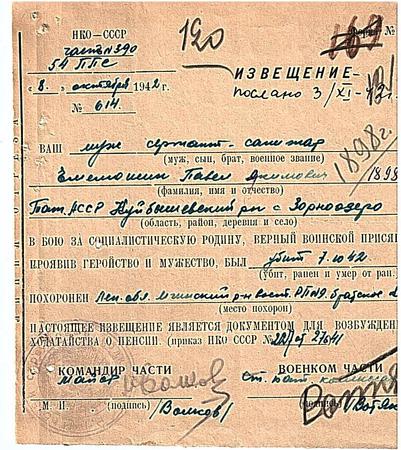 120
169
НКО—СССР
часть №390
54 ППС
8. октября 1942 г.
№ 614.
ИЗВЕЩЕНИЕ
послано 3/XI-
1898г.
ВАШ муж сержант-санитар
(муж, сын, брат, военное звание)
Павел 1898
(фамилия, имя и отчество)
Тат. АССР Куйбышевский рн с
(область, район, деревня и село)
В БОЮ ЗА СОЦИАЛИСТИЧЕСКУЮ РОДИНУ, ВЕРНЫЙ ВОИНСКОЙ ПРИСЯ
ПРОЯВИВ ГЕРОЙСТВО И МУЖЕСТВО, БЫЛ убит 7.10.42
(убит, ранен и умер от ран.
ПОХОРОНЕН Лен. обл. Мгинский р-н вост. братское
(место похорон)
НАСТОЯЩЕЕ ИЗВЕЩЕНИЕ ЯВЛЯЕТСЯ ДОКУМЕНТОМ ДЛЯ ВОЗБУЖДЕ
ХОДАТАЙСТВА О ПЕНСИИ (приказ НКО СССР №
КОМАНДИР ЧАСТИ
ВОЕНКОМ ЧАСТИ
майор
Ст. бат. комиссар
М. П.
(подпись) /Волков/
(подпись)